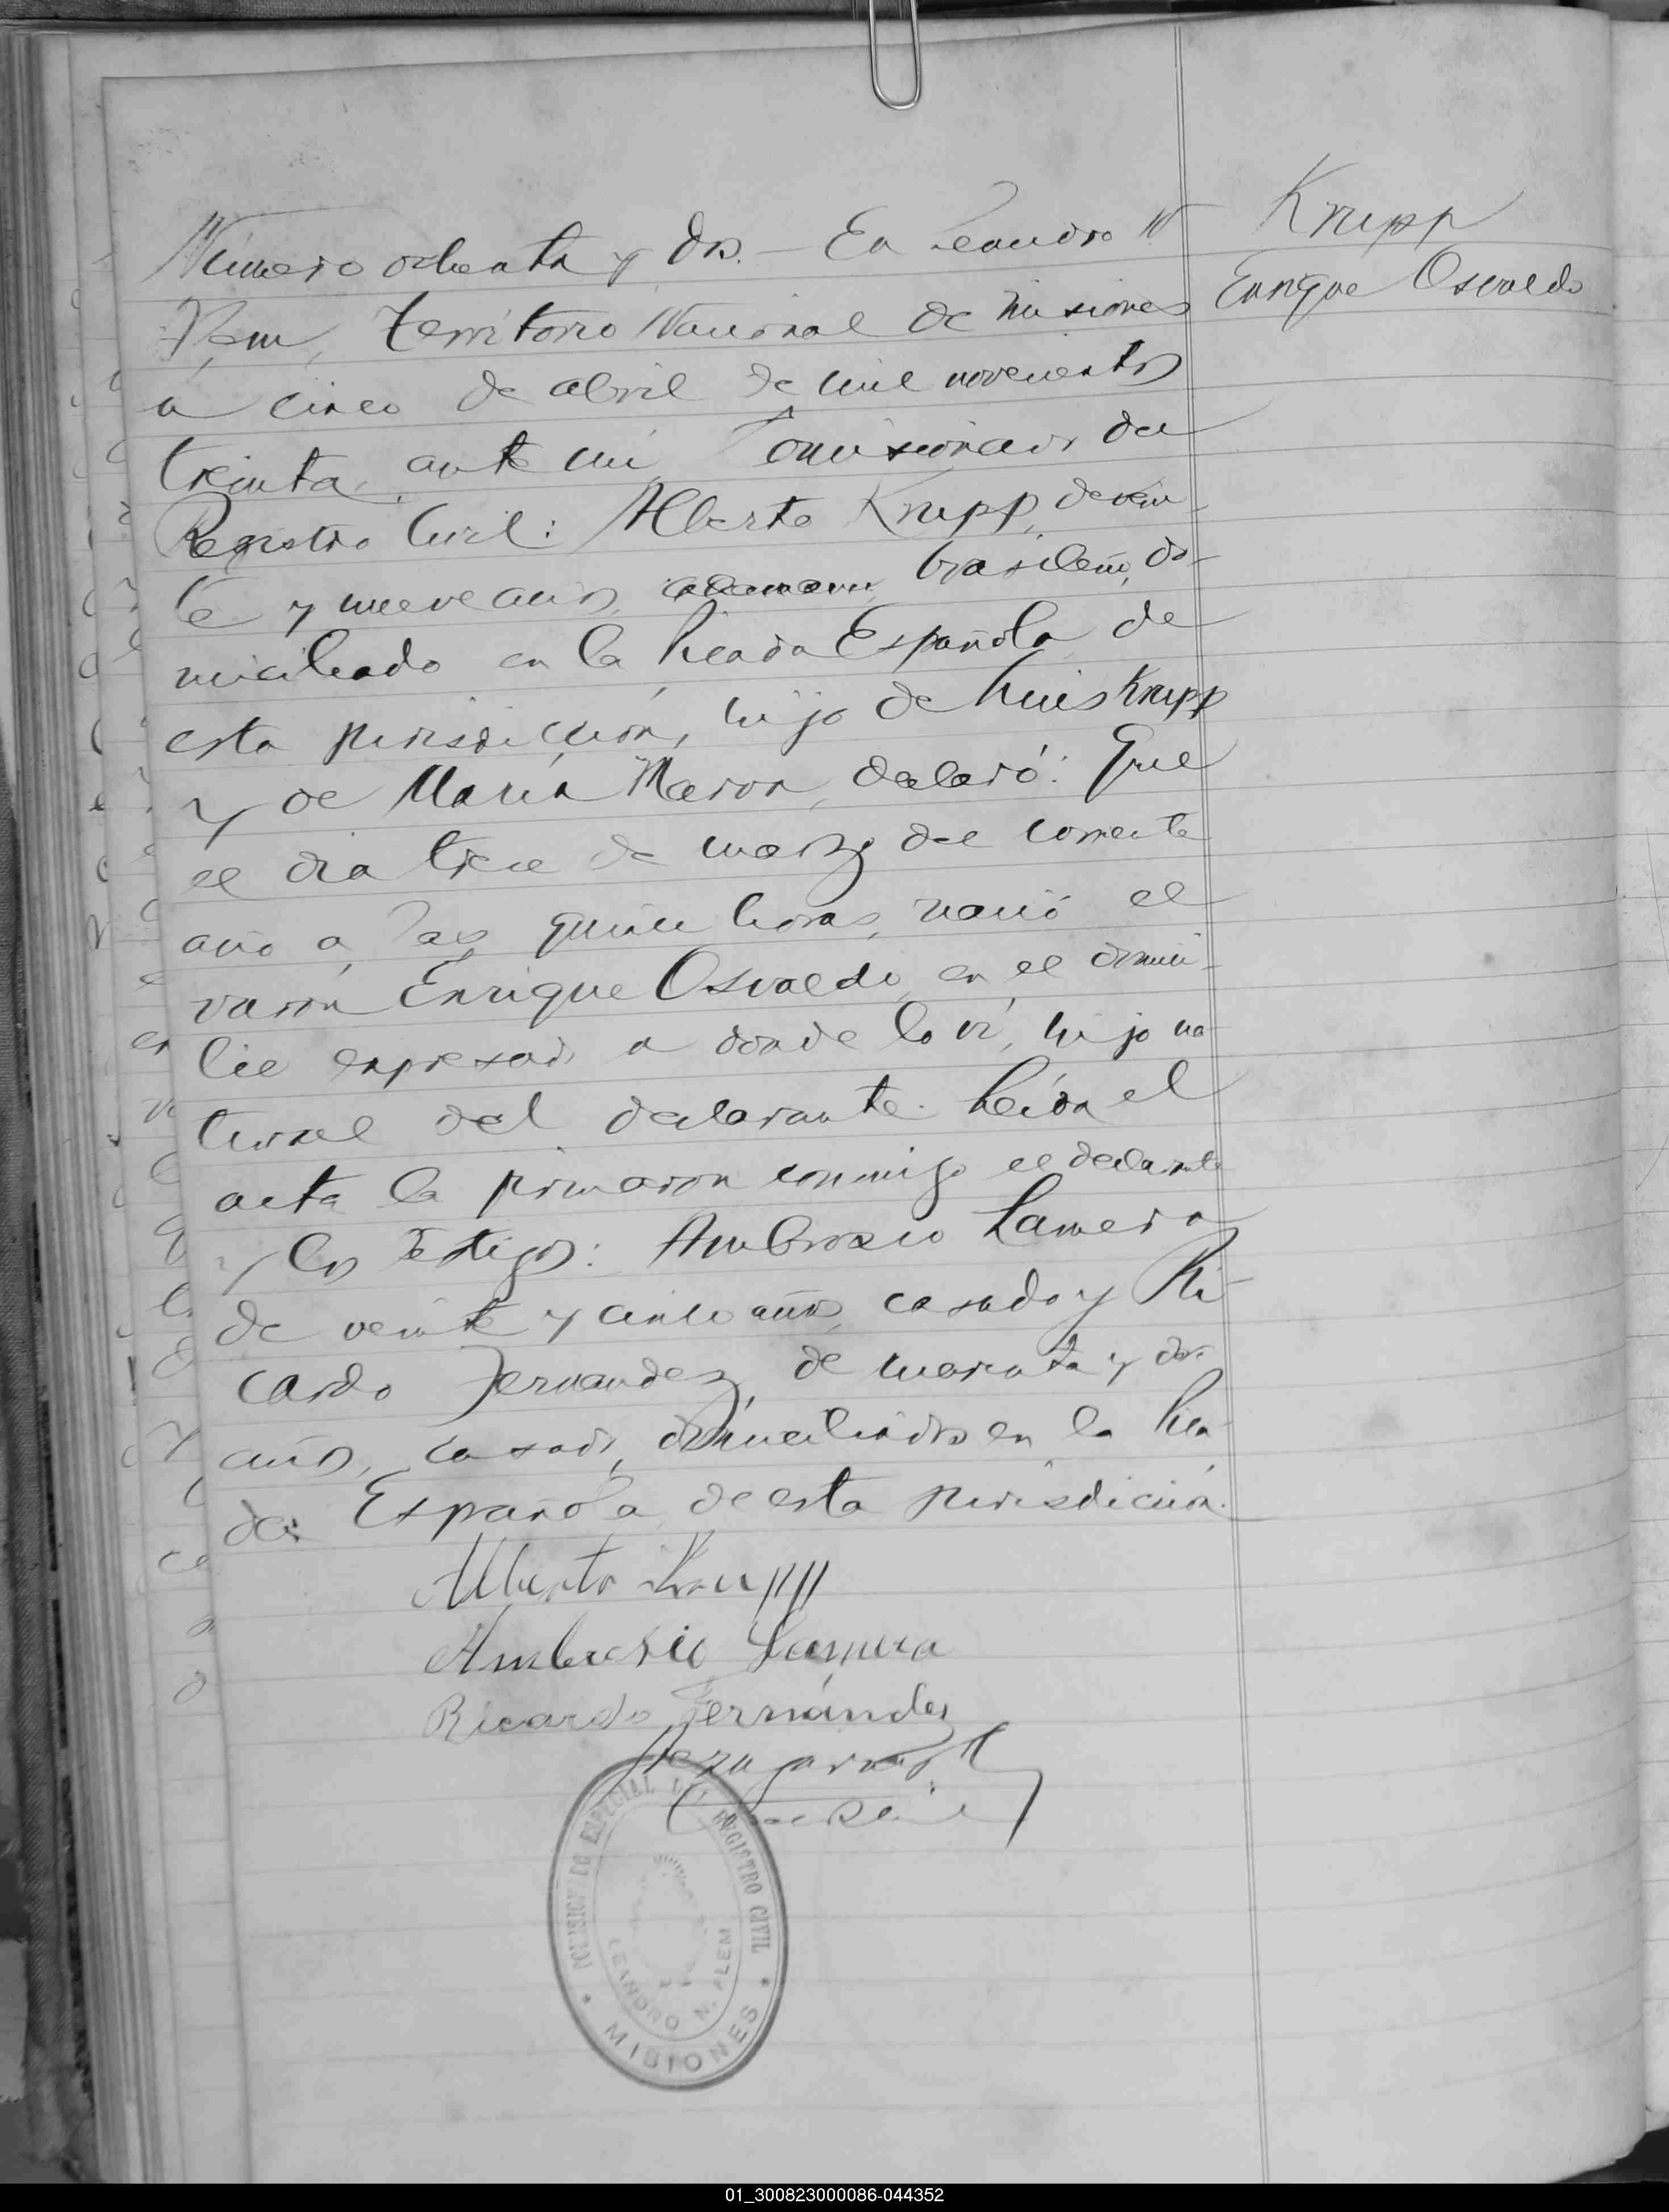 Knupp
Enrique Osvaldo
Número ochenta y dos.- En Leandro N
Alem, Territorio Nacional de Misiones
a cinco de abril de mil novecientos
treinta, ante mí Comisionado del
Registro Civil: Alberto Knupp, de vein-
te y nueve años, brasileño, do-
miciliado en la Picada Española de
esta jurisdicción, hijo de Luis Knupp
y de María declaró: Que
el dia trece de marzo del corriente
año a las quince horas, nació el
varón Enrique Osvaldo en el domici-
lio expresado a donde lo ví, hijo na-
tural del declarante. Leída el
acta la firmaron conmigo el declarante
y los testigos: Ambrosio Lamera
de veinte y cinco años, casado y Ri-
cardo Fernandez, de cuarenta y dos
años, casado, domiciliados en la Pica-
da Española de esta jurisdicción.
Alberto Knupp
Ambrosio Lamera
Ricardo Fernández
COMISIONADO ESPECIAL DEL REGISTRO CIVIL
LEANDRO N. ALEM
* MISIONES *
01_300823000086-044352